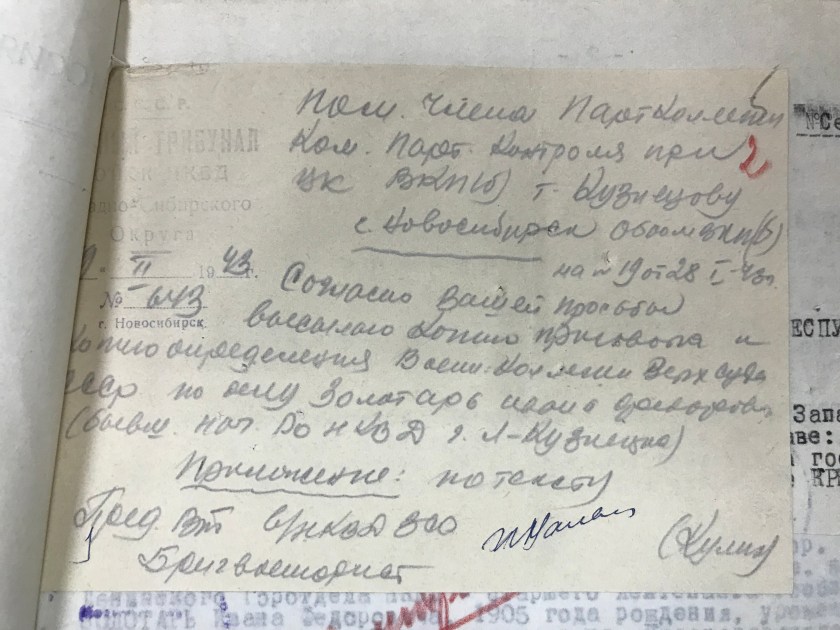 С.С.С.Р.
ТРИБУНАЛ
НКВД
Сибирского
Округа
II 1943 г.
№ 643
г. Новосибирск
Пом. Члена ПартКоллегии
Ком. Парт. Контроля при
ЦК ВКП(б) т. Кузнецову
г. Новосибирск Обком ВКП(б)
на № 19 от 28 I-43г.
2
Согласно Вашей просьбы
высылаю копию приговора и
копию определения Воен. Коллегии Верх суда
СССР по делу Золотарь Ивана Федоровича
(бывш. нач. Го НКВД г. Л-Кузнецка)
Приложение: по тексту
Пред. ВТ в/НКВД ЗСО
Бригвоенюрист
(Кулик)
№ Се
РЕСПУ
Запа
аве:
гос
КР
Ленинского Горотдела
старшего лейтенанта
ЗОЛОТАРЬ Ивана Федоровича, 1905 года рождения, уроже